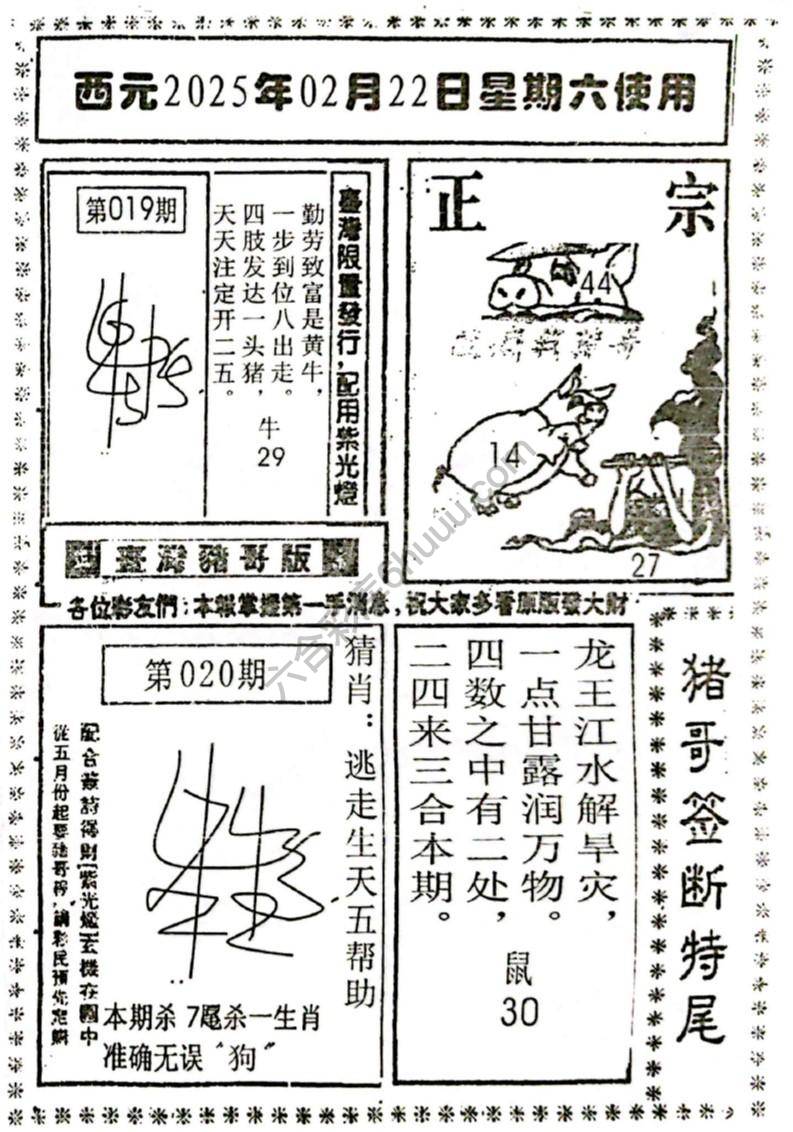 西元2025年02月22日星期六使用
第019期
勤劳致富是黄牛，
一步到位八出走。
四肢发达一头猪，
天天注定开二五。
牛
29
臺灣限量發行，配用紫光燈
正宗
44
14
27
臺灣豬哥版
各位彩友們：本報掌握第一手消息，祝大家多看原版發大財
第020期
猜肖：逃走生天五帮助
配合簽詩得財紫光燈玄機在圖中
從五月份起要豬哥
本期杀7尾杀一生肖
准确无误“狗”
龙王江水解旱灾，
一点甘露润万物。
四数之中有二处，
二四来三合本期。
鼠
30
猪哥签断特尾
六合彩库6huuu.com